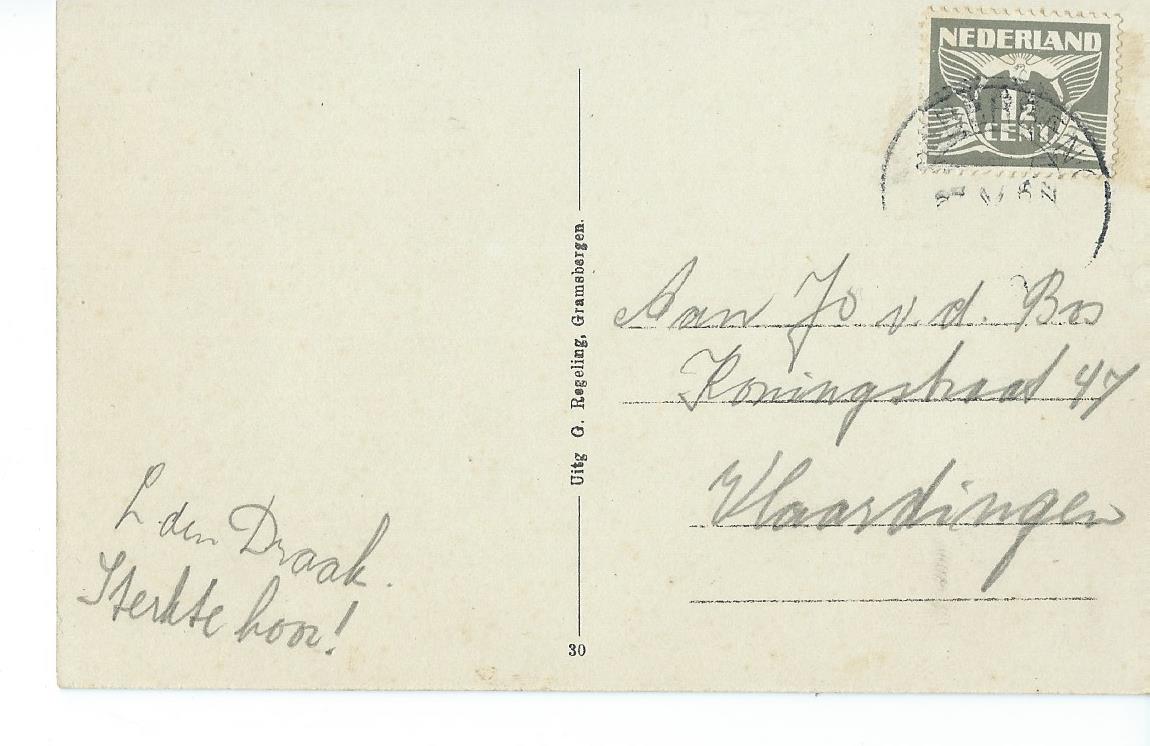 NEDERLAND
1½
CENT
Aan Jo v.d. Bos
Koningstraat 47
Vlaardingen
Uitg G. Regeling, Gramsbergen.
L den Draak.
Sterkte hoor!
30